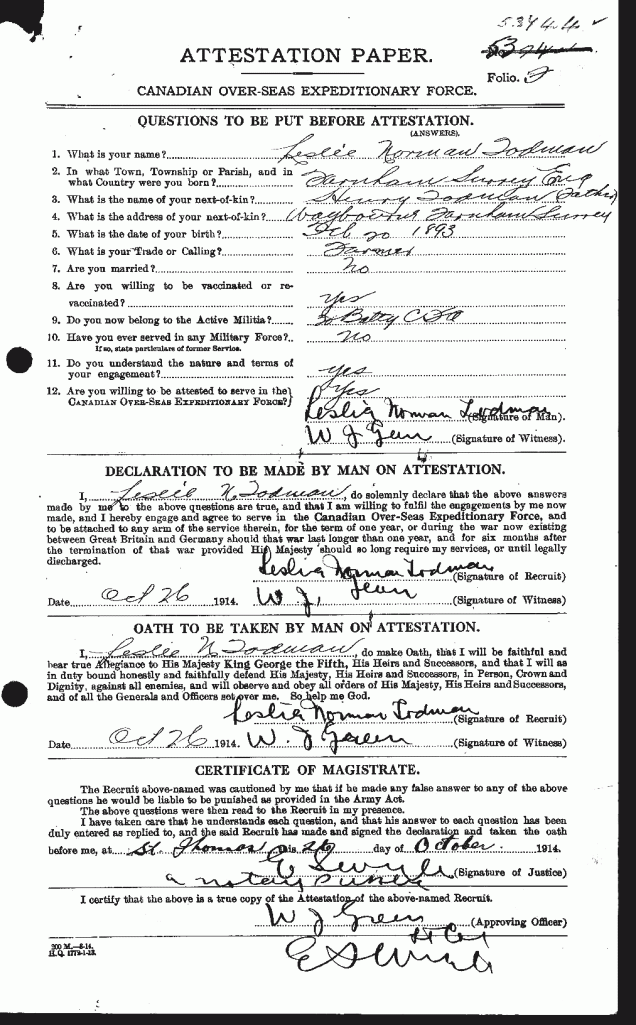 53944
Folio. 2
ATTESTATION PAPER.
CANADIAN OVER-SEAS EXPEDITIONARY FORCE.
QUESTIONS TO BE PUT BEFORE ATTESTATION.
(ANSWERS).
1. What is your name? Leslie Norman Todman
2. In what Town, Township or Parish, and in
what Country were you born? Farnham Surrey Eng
3. What is the name of your next-of-kin? Henry Todman (Father)
4. What is the address of your next-of-kin? Farnham Surrey
5. What is the date of your birth? Feb 20 1893
6. What is your Trade or Calling? Farmer
7. Are you married? No
8. Are you willing to be vaccinated or re-
vaccinated? Yes
9. Do you now belong to the Active Militia? Batty
10. Have you ever served in any Military Force? No
If so, state particulars of former Service.
11. Do you understand the nature and terms of
your engagement? yes
12. Are you willing to be attested to serve in the
CANADIAN OVER-SEAS EXPEDITIONARY FORCE? Yes
Leslie Norman Todman (Signature of Man).
W J Green (Signature of Witness).
DECLARATION TO BE MADE BY MAN ON ATTESTATION.
I, Leslie N. Todman, do solemnly declare that the above answers
made by me to the above questions are true, and that I am willing to fulfil the engagements by me now
made, and I hereby engage and agree to serve in the Canadian Over-Seas Expeditionary Force, and
to be attached to any arm of the service therein, for the term of one year, or during the war now existing
between Great Britain and Germany should that war last longer than one year, and for six months after
the termination of that war provided His Majesty should so long require my services, or until legally
discharged.
Leslie Norman Todman (Signature of Recruit)
Date Oct 26 1914. W. J. Green (Signature of Witness)
OATH TO BE TAKEN BY MAN ON ATTESTATION.
I, Leslie N. Todman, do make Oath, that I will be faithful and
bear true Allegiance to His Majesty King George the Fifth, His Heirs and Successors, and that I will as
in duty bound honestly and faithfully defend His Majesty, His Heirs and Successors, in Person, Crown and
Dignity, against all enemies, and will observe and obey all orders of His Majesty, His Heirs and Successors,
and of all the Generals and Officers set over me. So help me God.
Leslie Norman Todman (Signature of Recruit)
Date Oct 26 1914. W. J Green (Signature of Witness)
CERTIFICATE OF MAGISTRATE.
The Recruit above-named was cautioned by me that if he made any false answer to any of the above
questions he would be liable to be punished as provided in the Army Act.
The above questions were then read to the Recruit in my presence.
I have taken care that he understands each question, and that his answer to each question has been
duly entered as replied to, and the said Recruit has made and signed the declaration and taken the oath
before me, at St. Thomas this 26 day of October. 1914.
(Signature of Justice)
a notary public
I certify that the above is a true copy of the Attestation of the above-named Recruit.
W J Green (Approving Officer)
200 M.—8-14.
H.Q. 1772-1-13.